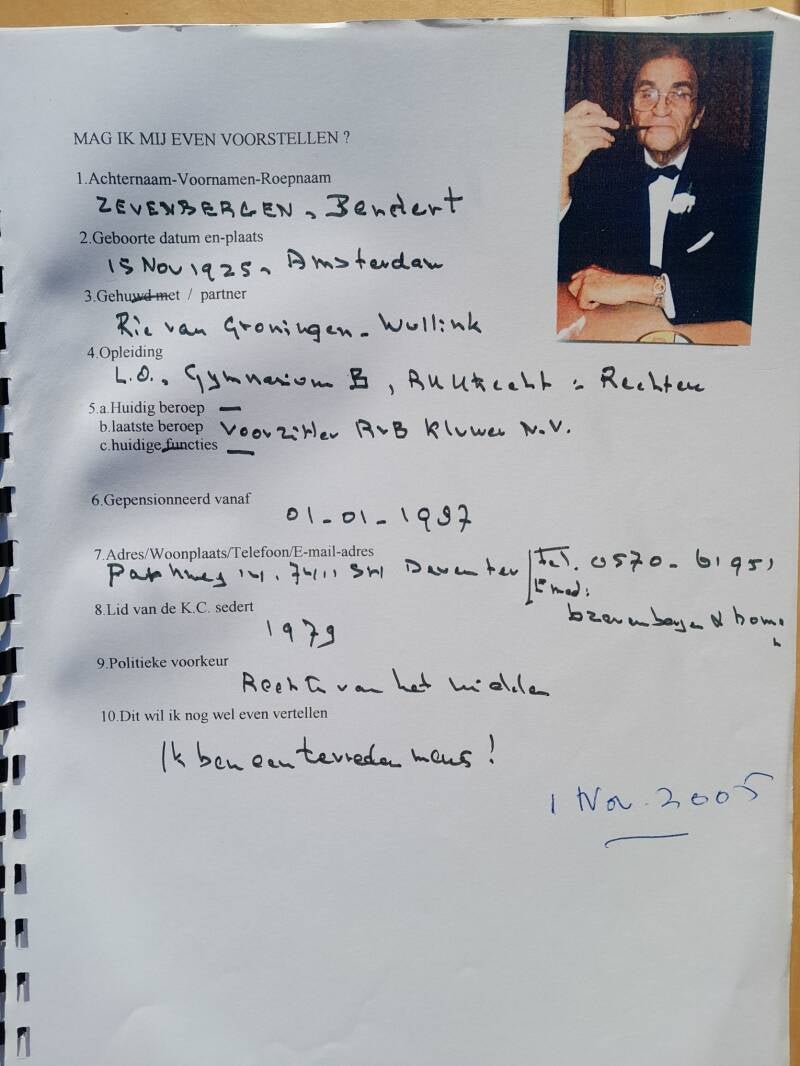 MAG IK MIJ EVEN VOORSTELLEN ?
1.Achternaam-Voornamen-Roepnaam
ZEVENBERGEN, Bendert
2.Geboorte datum en-plaats
15 Nov 1925, Amsterdam
3.Gehuwd met / partner
Rie van Groningen - Wullink
4.Opleiding
L.O., Gymnasium B, RU Utrecht : Rechten
5.a.Huidig beroep —
b.laatste beroep Voorzitter RvB Kluwer N.V.
c.huidige functies —
6.Gepensionneerd vanaf
01-01-1987
7.Adres/Woonplaats/Telefoon/E-mail-adres
Deventer Tel. 0570-
8.Lid van de K.C. sedert
1979
9.Politieke voorkeur
Rechts van het midden
10.Dit wil ik nog wel even vertellen
Ik ben een tevreden mens!
1 Nov. 2005